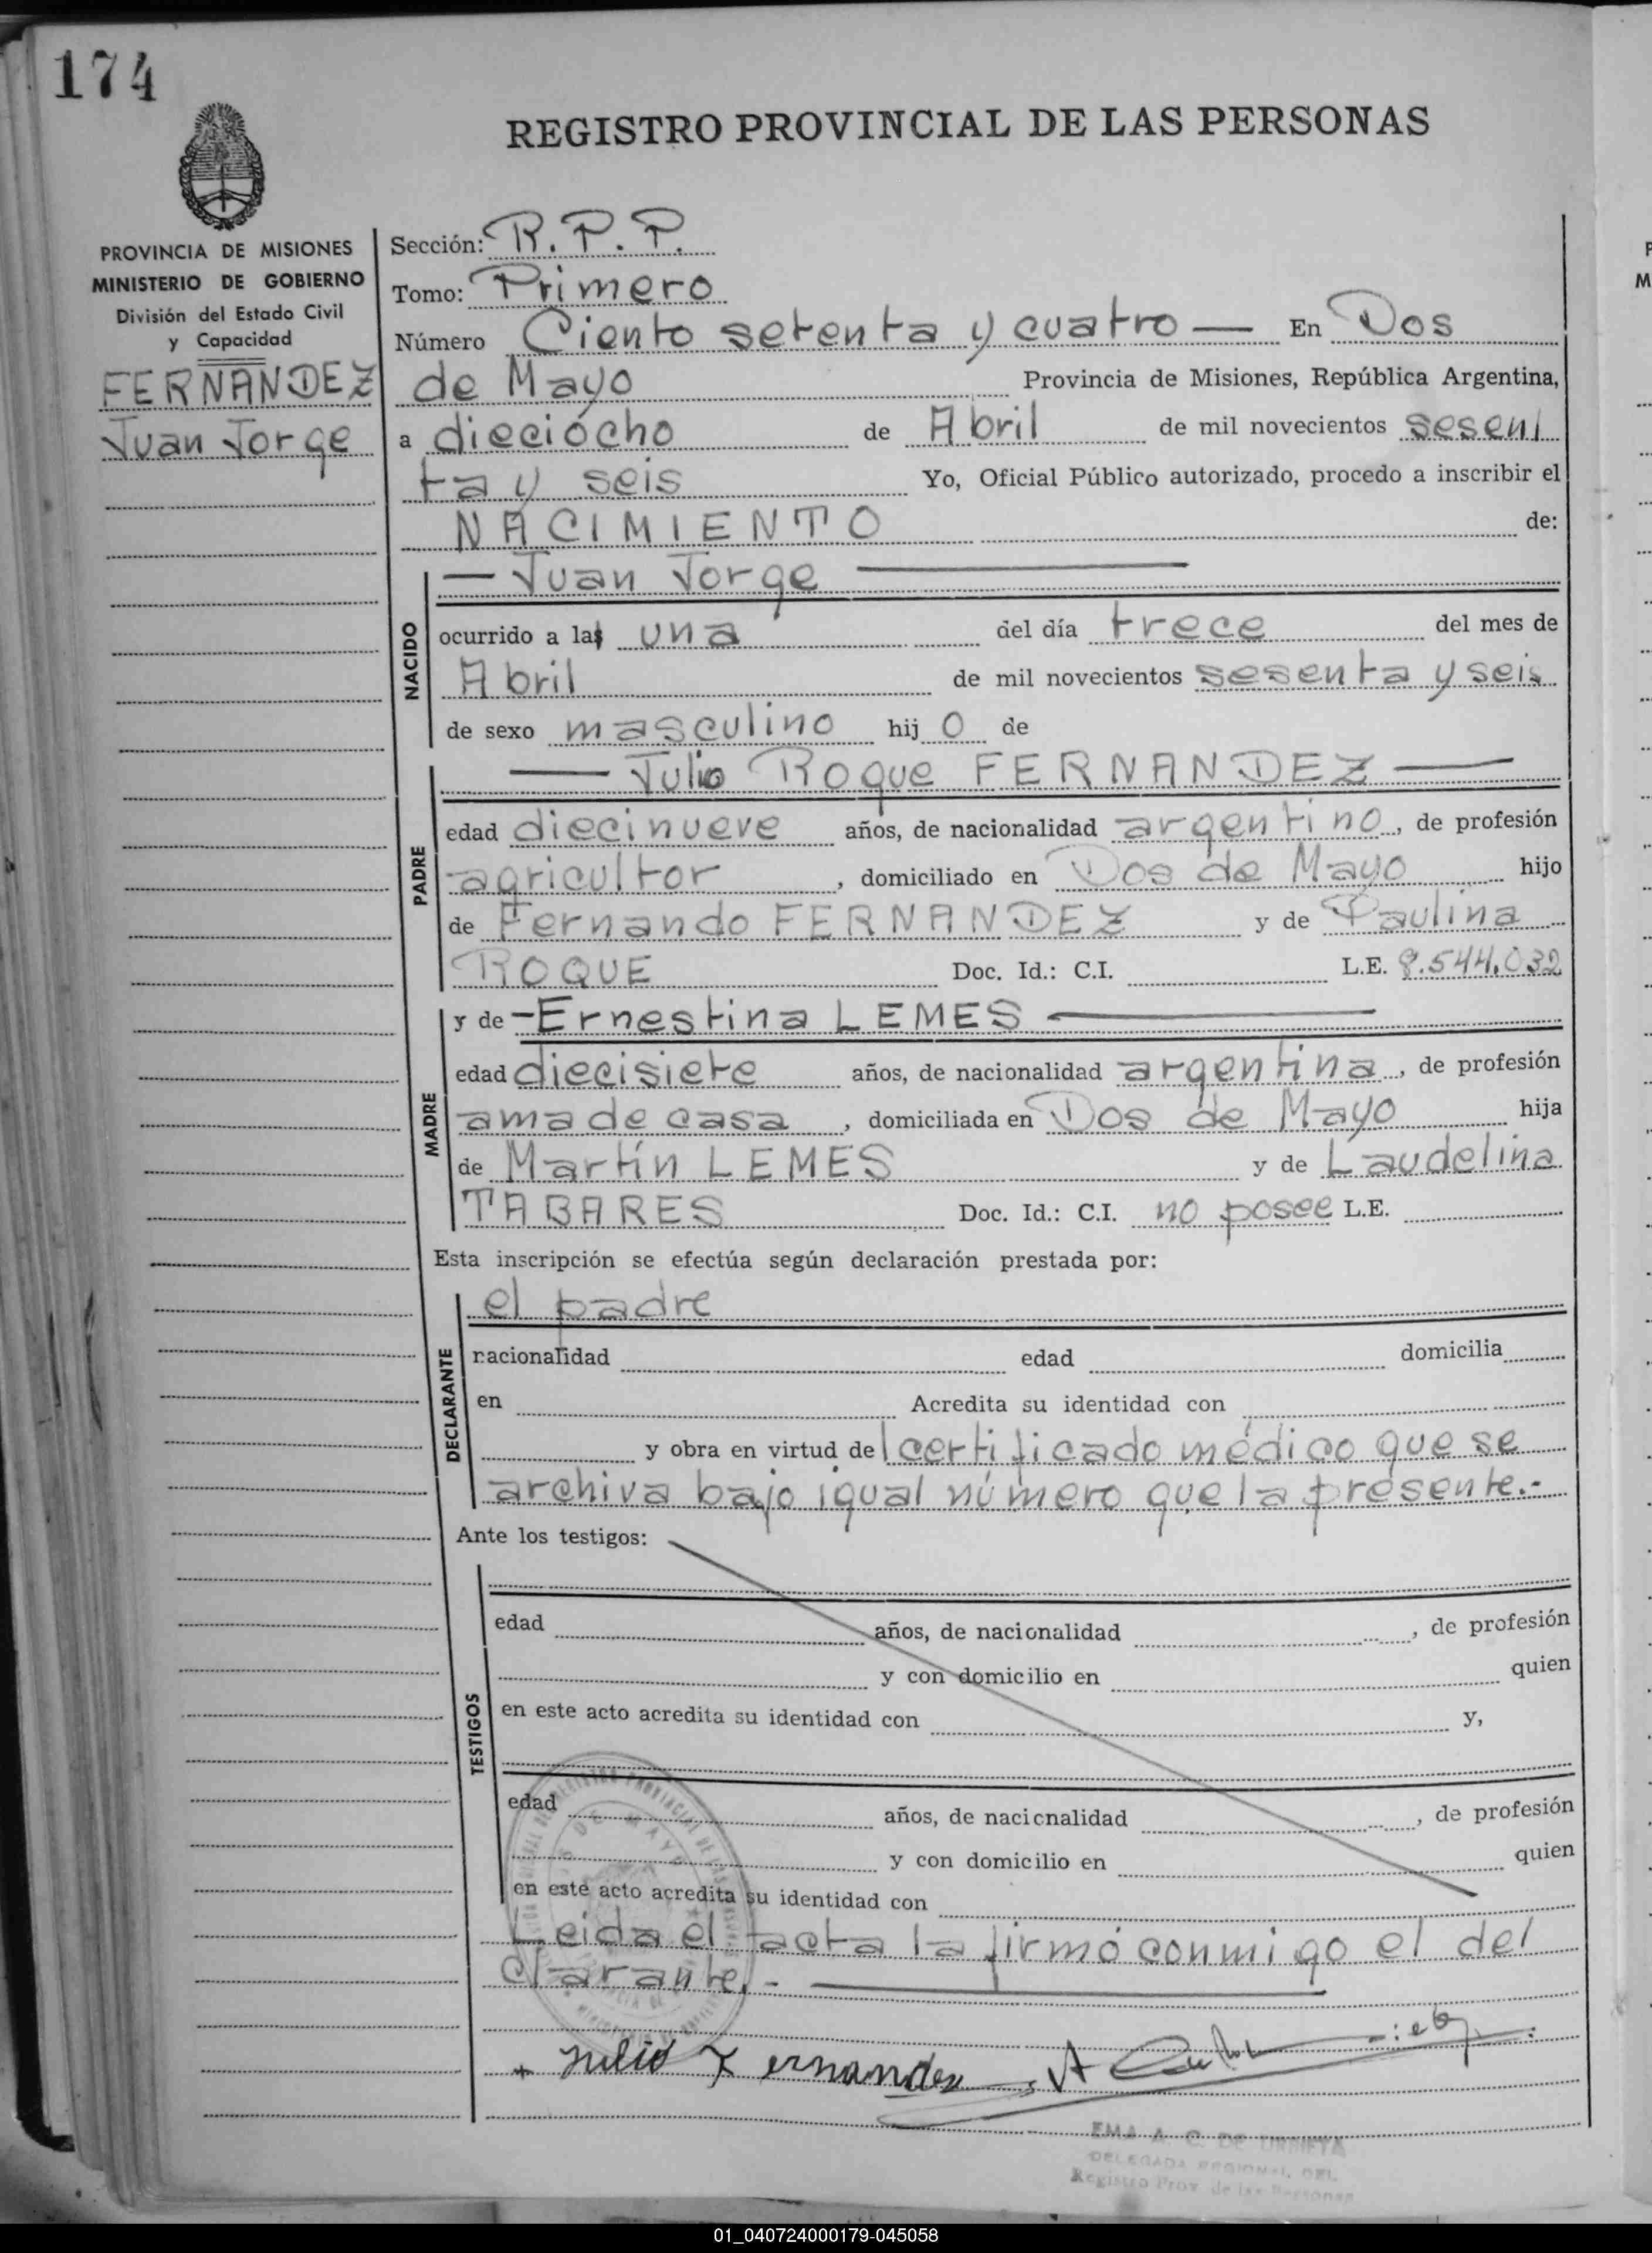 174
REGISTRO PROVINCIAL DE LAS PERSONAS
PROVINCIA DE MISIONES
MINISTERIO DE GOBIERNO
División del Estado Civil
y Capacidad
FERNANDEZ
Juan Jorge
Sección: R. P. P.
Tomo: Primero
Número Ciento setenta y cuatro — En Dos
de Mayo Provincia de Misiones, República Argentina,
a dieciocho de Abril de mil novecientos sesen
ta y seis Yo, Oficial Público autorizado, procedo a inscribir el
NACIMIENTO de:
NACIDO
— Juan Jorge —
ocurrido a las una del día trece del mes de
Abril de mil novecientos sesenta y seis
de sexo masculino hij o de
PADRE
— Julio Roque FERNANDEZ —
edad diecinueve años, de nacionalidad argentino, de profesión
agricultor, domiciliado en Dos de Mayo hijo
de Fernando FERNANDEZ y de Paulina
ROQUE Doc. Id.: C.I. L.E. 8.544.032
MADRE
y de — Ernestina LEMES —
edad diecisiete años, de nacionalidad argentina, de profesión
ama de casa, domiciliada en Dos de Mayo hija
de Martín LEMES y de Laudelina
TABARES Doc. Id.: C.I. no posee L.E.
Esta inscripción se efectúa según declaración prestada por:
DECLARANTE
el padre
nacionalidad edad domicilia
en Acredita su identidad con
y obra en virtud del certificado médico que se
archiva bajo igual número que la presente.-
Ante los testigos:
TESTIGOS
edad años, de nacionalidad , de profesión
y con domicilio en quien
en este acto acredita su identidad con y,
edad años, de nacionalidad , de profesión
y con domicilio en quien
en este acto acredita su identidad con
Leida el acta la firmó conmigo el del
clarante.- —
Julio Fernandez
EMA A. C. DE URRIETA
DELEGADA REGIONAL DEL
Registro Prov. de las Personas
01_040724000179-045058